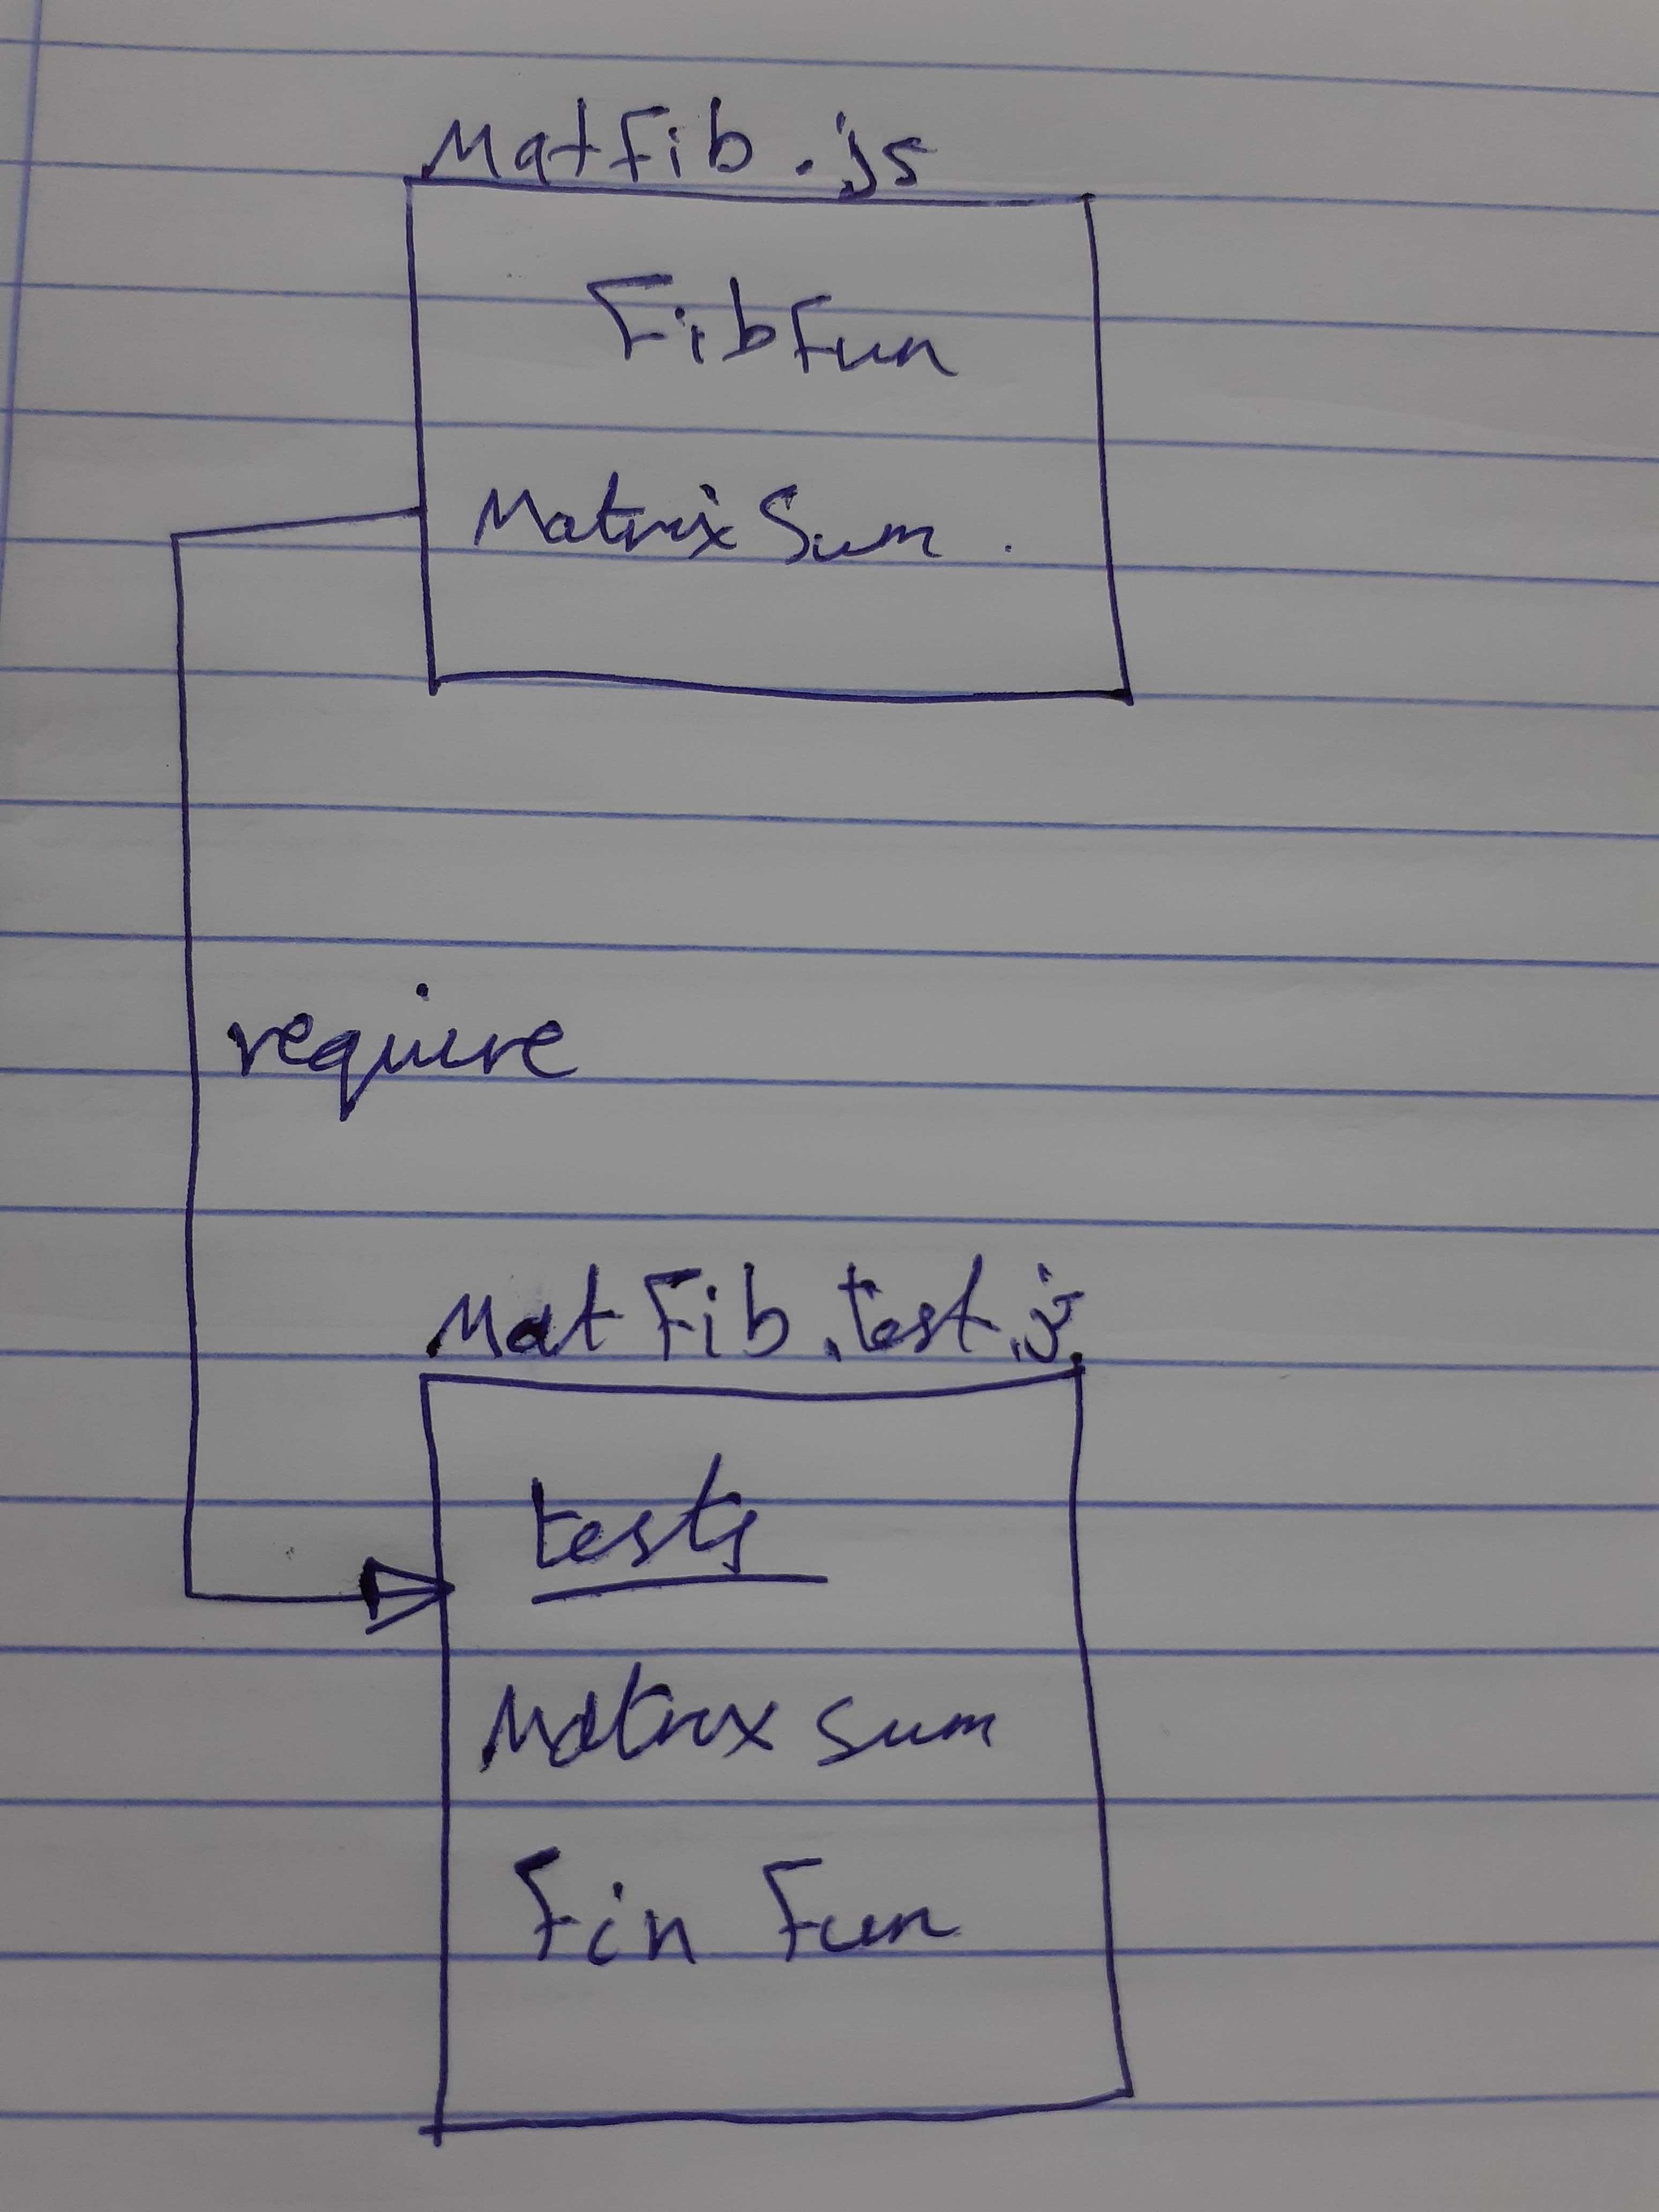 MatFib.js
FibFun
MatrixSum.
require
MatFib.test.js
tests
Matrix sum
Fin Fun